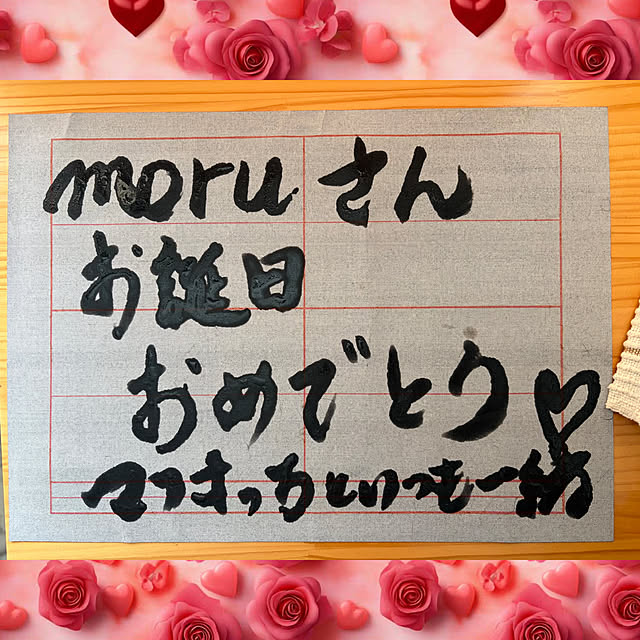 moruさん
お誕生日
おめでとう♡
マつオっちといつも一緒